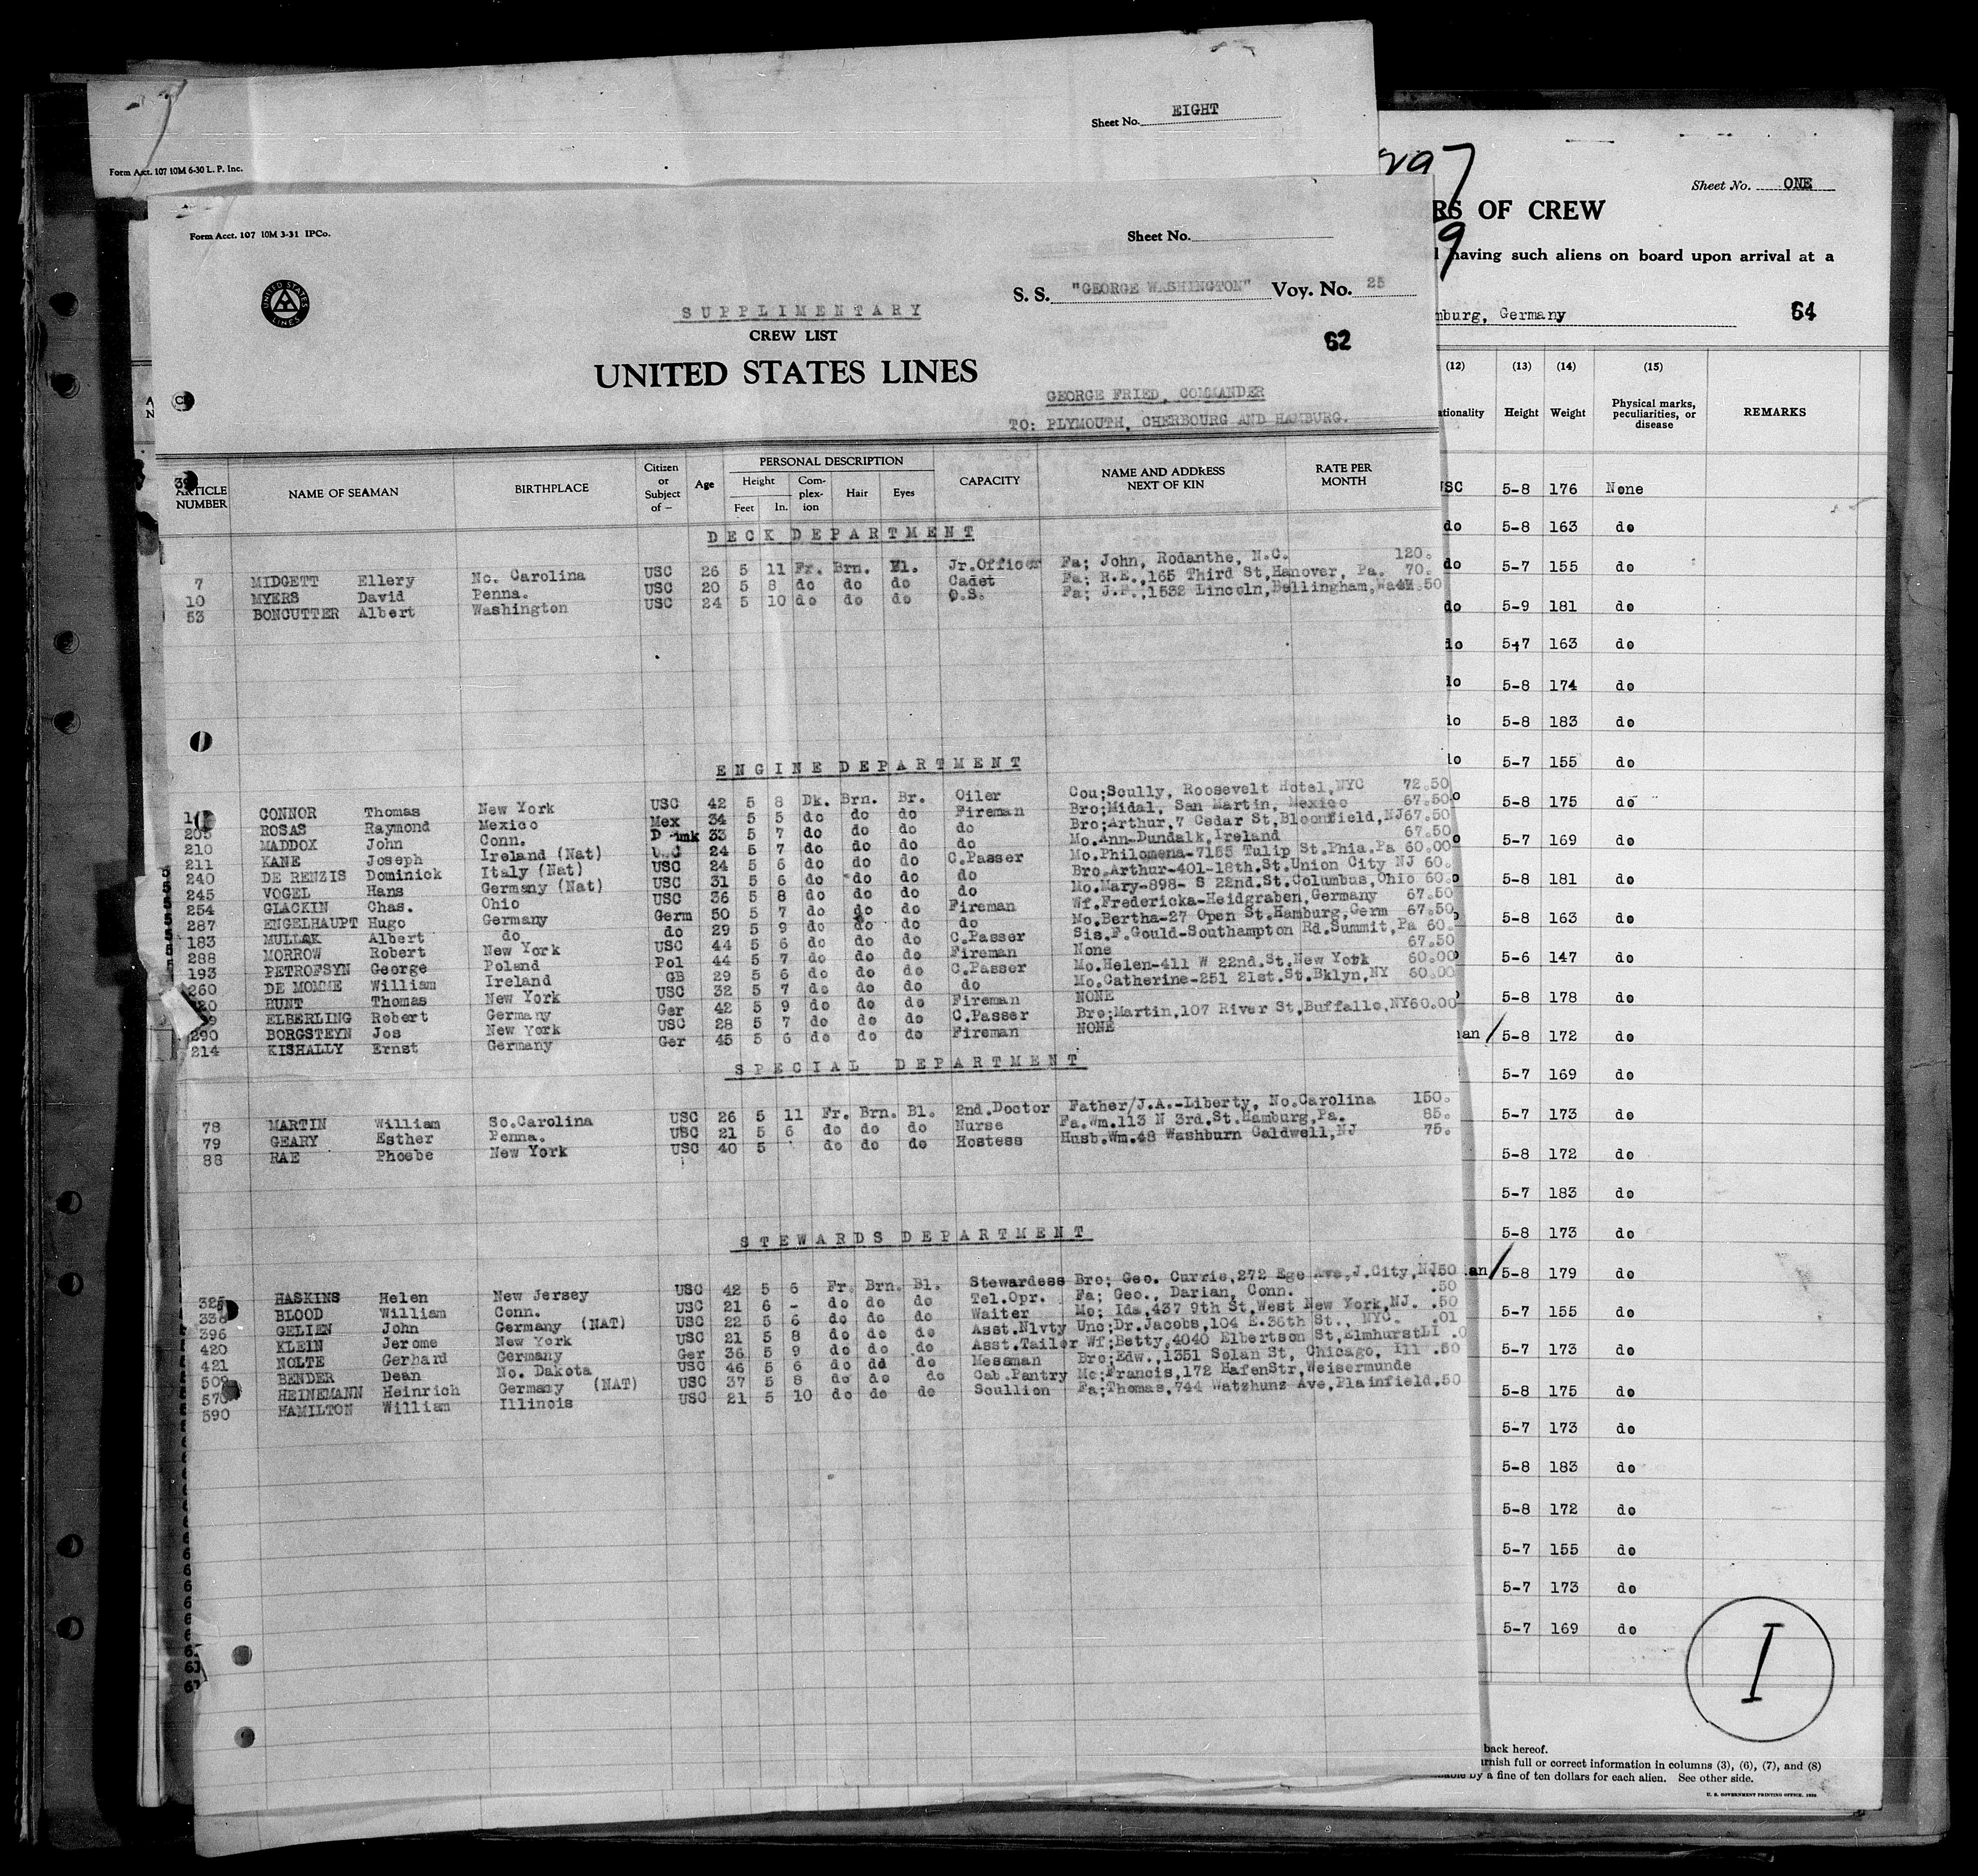 Sheet No. EIGHT
Form Acct. 107 10M 6-30 L. P. Inc.
Form Acct. 107 10M 3-31 IPCo.
Sheet No.
UNITED STATES LINES
S. S. "GEORGE WASHINGTON" Voy. No. 25
SUPPLIMENTARY
CREW LIST
62
UNITED STATES LINES
GEORGE FRIED, COMMANDER
TO: PLYMOUTH, CHERBOURG AND HAMBURG.
ARTICLE NUMBER NAME OF SEAMAN BIRTHPLACE Citizen or Subject of – Age PERSONAL DESCRIPTION Height Feet In. Com-plex-ion Hair Eyes CAPACITY NAME AND ADDRESS NEXT OF KIN RATE PER MONTH
DECK DEPARTMENT
7 MIDGETT Ellery No. Carolina USC 26 5 11 Fr. Brn. Bl. Jr.Officer Fa; John, Rodanthe, N.C. 120.
10 MYERS David Penna. USC 20 5 8 do do do Cadet Fa; R.E.,165 Third St,Hanover, Pa. 70.
53 BONCUTTER Albert Washington USC 24 5 10 do do do O.S. Fa; J.F.,1532 Lincoln,Bellingham, .50
ENGINE DEPARTMENT
CONNOR Thomas New York USC 42 5 8 Dk. Brn. Br. Oiler Cou;Scully, Roosevelt Hotel,NYC 72.50
205 ROSAS Raymond Mexico Mex 34 5 5 do do do Fireman Bro;Midal, San Martin, Mexico 67.50
210 MADDOX John Conn. 33 5 7 do do do do Bro;Arthur,7 Cedar St,Bloomfield,NJ67.50
211 KANE Joseph Ireland (Nat) 24 5 7 do do do do Mo.Ann-Dundalk,Ireland 67.50
240 DE RENZIS Dominick Italy (Nat) USC 24 5 6 do do do C.Passer Mo.Philomena-7155 Tulip St.Phia.Pa 60.00
245 VOGEL Hans Germany (Nat) USC 31 5 6 do do do do Bro.Arthur-401-18th.St.Union City NJ 60.
254 GLACKIN Chas. Ohio USC 36 5 8 do do do do Mo.Mary-898- S 22nd.St.Columbus,Ohio 60.
287 ENGELHAUPT Hugo Germany Germ 50 5 7 do do do Fireman Wf.Fredericka-Heidgraben,Germany 67.50
183 MULLAK Albert do do 29 5 9 do do do do Mo.Bertha-27 Open St.Hamburg,Germ 67.50
288 MORROW Robert New York USC 44 5 6 do do do C.Passer Sis.F.Gould-Southampton Rd.Summit,Pa 60.
193 PETROFSYN George Poland Pol 44 5 7 do do do Fireman None 67.50
260 DE MOMME William Ireland GB 29 5 6 do do do C.Passer Mo.Helen-411 W 22nd.St.New York 60.00
HUNT Thomas New York USC 32 5 7 do do do do Mo.Catherine-251 21st.St.Bklyn,NY 60.00
ELBERLING Robert Germany Ger 42 5 9 do do do Fireman NONE
290 BORGSTEYN Jos New York USC 28 5 7 do do do C.Passer Bro;Martin,107 River St,Buffalo,NY60.00
214 KISHALLY Ernst Germany Ger 45 5 6 do do do Fireman NONE
SPECIAL DEPARTMENT
78 MARTIN William So.Carolina USC 26 5 11 Fr. Brn. Bl. 2nd.Doctor Father/J.A.-Liberty, No.Carolina 150.
79 GEARY Esther Penna. USC 21 5 6 do do do Nurse Fa.Wm.113 N 3rd.St.Hamburg,Pa. 85.
88 RAE Phoebe New York USC 40 5 do do do Hostess Husb.Wm.48 Washburn Caldwell,NJ 75.
STEWARDS DEPARTMENT
325 HASKINS Helen New Jersey USC 42 5 6 Fr. Brn. Bl. Stewardess Bro; Geo. Currie,272 Ege Ave,J.City,NJ50
338 BLOOD William Conn. USC 21 6 - do do do Tel.Opr. Fa; Geo., Darian, Conn. .50
396 GELIEN John Germany (NAT) USC 22 5 6 do do do Waiter Mo; Ida,437 9th St,West New York,NJ. .50
420 KLEIN Jerome New York USC 21 5 8 do do do Asst.Nlvty Unc;Dr.Jacobs,104 E.36th St., NYC. .01
421 NOLTE Gerhard Germany Ger 36 5 9 do do do Asst.Tailor Wf;Betty,4040 Elbertson St,ElmhurstLI .0
509 BENDER Dean No. Dakota USC 46 5 6 do dd do Messman Bro;Edw.,1351 Solan St, Chicago, Ill .50
570 HEINEMANN Heinrich Germany (NAT) USC 37 5 8 do do do Cab.Pantry Mo;Francis,172 HafenStr,Weisermunde
590 HAMILTON William Illinois USC 21 5 10 do do do Scullion Fa;Thomas,744 Watzhunz Ave,Plainfield.50
297
9
Sheet No. ONE
RS OF CREW
having such aliens on board upon arrival at a
mburg, Germany 64
(12) (13) (14) (15)
ationality Height Weight Physical marks, peculiarities, or disease REMARKS
USC 5-8 176 None
do 5-8 163 do
do 5-7 155 do
do 5-9 181 do
do 5-7 163 do
do 5-8 174 do
do 5-8 183 do
do 5-7 155 do
5-8 175 do
5-7 169 do
5-8 181 do
5-8 163 do
5-6 147 do
5-8 178 do
an / 5-8 172 do
5-7 169 do
5-7 173 do
5-8 172 do
5-7 183 do
5-8 173 do
an / 5-8 179 do
5-7 155 do
5-7 173 do
5-8 175 do
5-7 173 do
5-8 183 do
5-8 172 do
5-7 155 do
5-7 173 do
5-7 169 do
I
back hereof.
rnish full or correct information in columns (3), (6), (7), and (8)
by a fine of ten dollars for each alien. See other side.
U. S. GOVERNMENT PRINTING OFFICE.